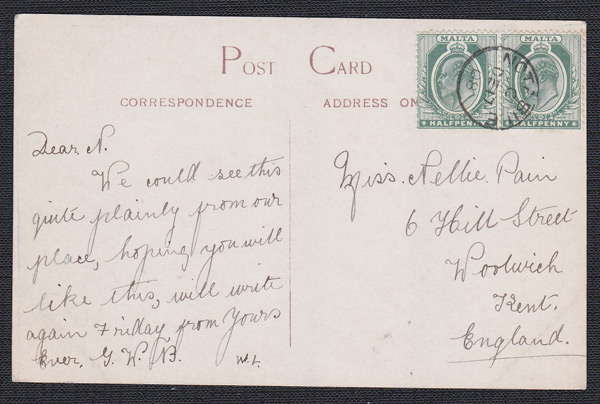 POST CARD
CORRESPONDENCE
ADDRESS ON
MALTA
HALFPENNY
MALTA
HALFPENNY
NOTABILE
Dear N.
We could see this
quite plainly from our
place, hoping you will
like this, will write
again Friday, from Yours
Ever, G. W. B.
Miss. Nellie. Pain
6 Hill Street
Woolwich
Kent.
England.